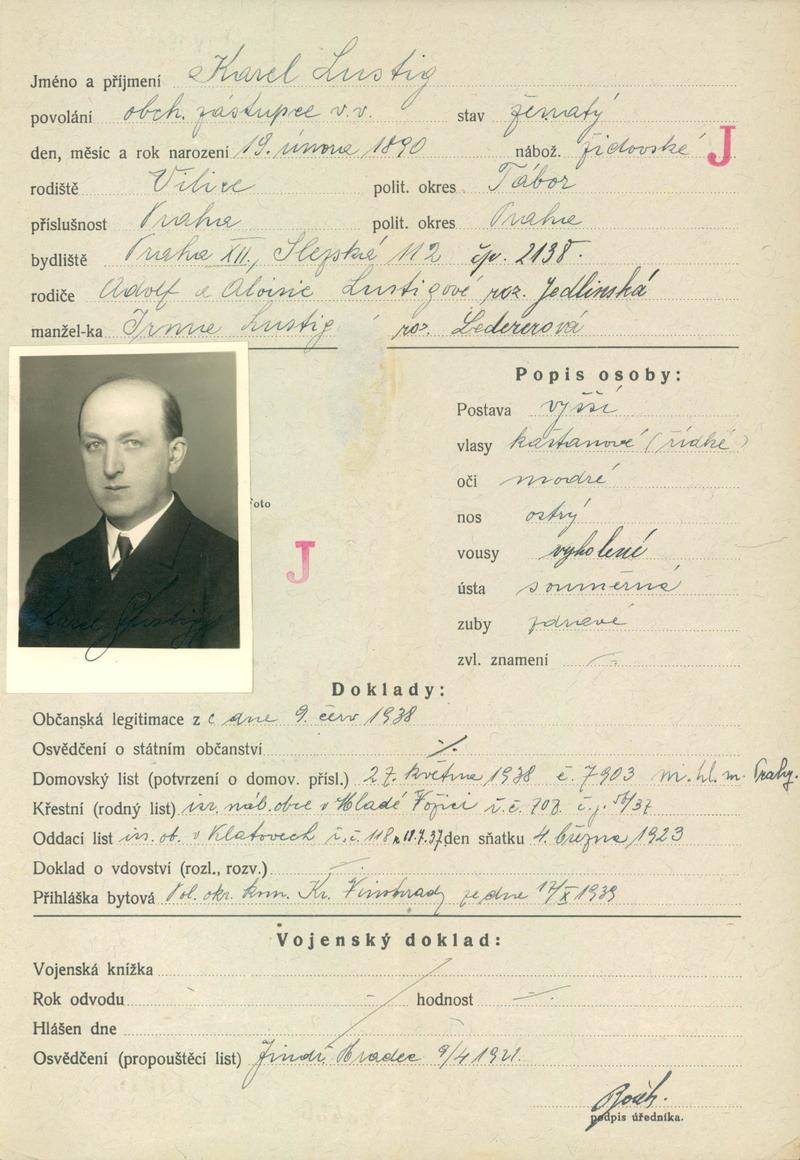 Jméno a příjmení Karel Lustig
povolání obch. zástupce v.v. stav ženatý
den, měsíc a rok narození 19. února 1890 nábož. židovské J
rodiště Vilice polit. okres Tábor
příslušnost Praha polit. okres Praha
bydliště Praha XII., Slezská 112 čp. 2138.
rodiče Adolf a Aloisie Lustigové roz. Jedlinská
manžel-ka Irma Lustig roz. Ledererová
Popis osoby:
Postava vyšší
vlasy kaštanové (řídké)
oči modré
Foto
nos ostrý
vousy vyholené
J
ústa souměrná
zuby zdravé
Karel Lustig
zvl. znamení
Doklady:
Občanská legitimace z e dne 9. červ 1938
Osvědčení o státním občanství
Domovský list (potvrzení o domov. přísl.) 27. května 1938 č. 7903 m. hl. m. Prahy.
Křestní (rodný list) isr. náb. obce v Mladé Vožici ř. č. 708 č. j. 56/37
Oddací list isr. ob. v Klatovech ř. č. 118 den sňatku 4. března 1923
Doklad o vdovství (rozl., rozv.)
Přihláška bytová Pol. okr. kom. Kr. Vinohrady ze dne 17/X 1939
Vojenský doklad:
Vojenská knížka
Rok odvodu hodnost
Hlášen dne
Osvědčení (propouštěcí list) Jindř. Hradec 9/4 1921.
podpis úředníka.